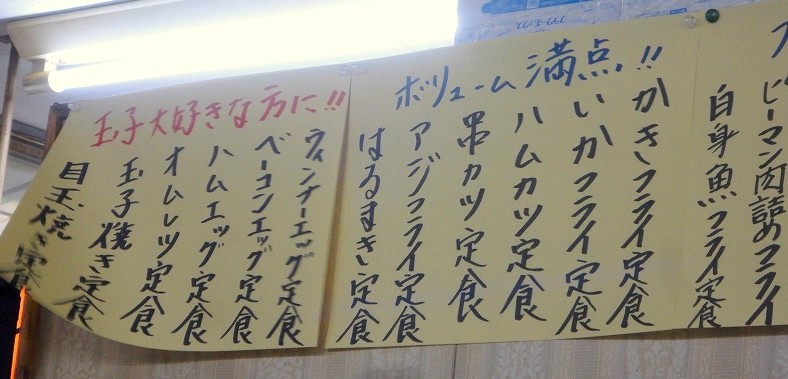 ピーマン肉詰めフライ
白身魚フライ定食
ボリューム満点!!
かきフライ定食
いかフライ定食
ハムカツ定食
串カツ定食
アジフライ定食
はるまき定食
玉子大好きな方に!!
ウィンナーエッグ定食
ベーコンエッグ定食
ハムエッグ定食
オムレツ定食
玉子焼き定食
目玉焼き定食